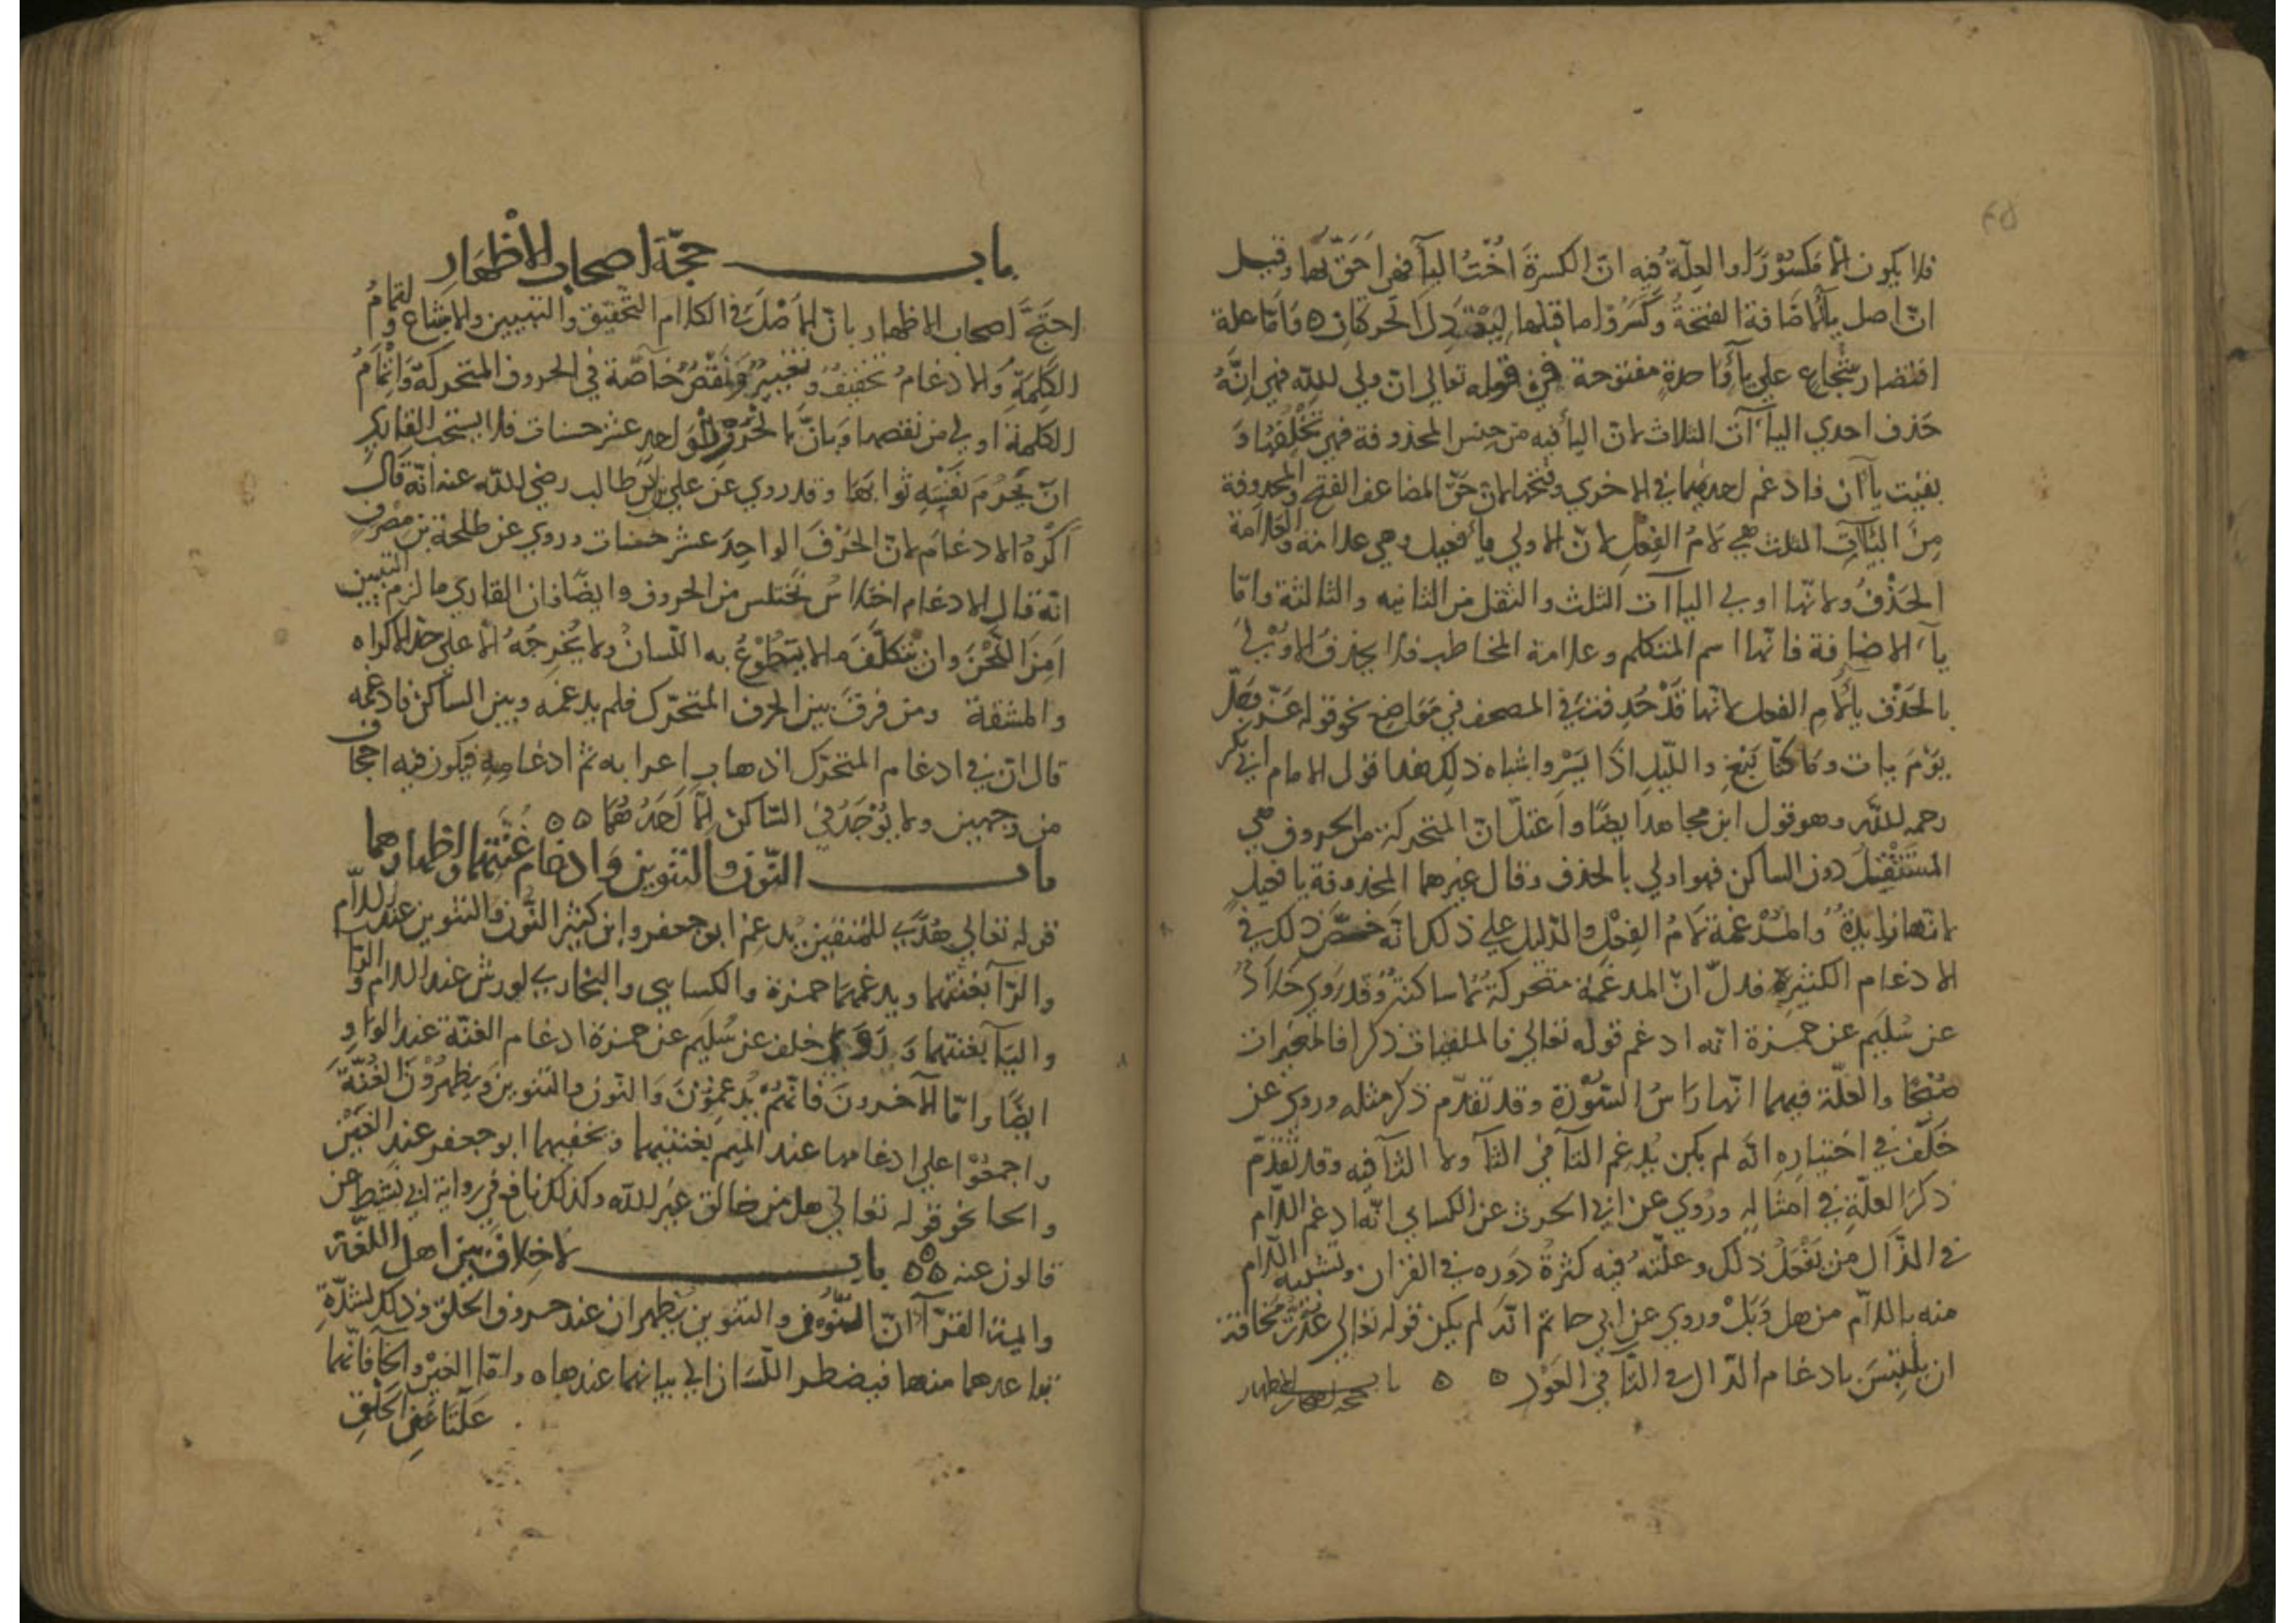 فلا يكون الا مكسورا والعلة فيه ان الكسرة اخت اليآ فهي احق بها وقيل
ان اصل يآ الاضافة الفتحة وكسروا ما قبلها الحركات ه وَامّا علة
اقتصار شجاع علي يآ واحدة مفتوحة في قوله تعالي ان ولي الله فهي انّهُ
حَذف احدي اليآآت الثلاث لانّ اليآ فيه من جنس المحذوفة فهي تخلفها وَ
بقيت ياآن فادغم احديهما في الاخري وفتحها لانّ حَقّ المضاعف الفتح والمحذوفة
مِنَ اليَآآتِ الثلث هي لامُ الفِعلِ لانّ الاولي يآ فعيل وهي علامة والعلامة
الحَذْفُ ولانّها اولي الياآت الثلث والثقل من الثانيه والثالثة وامّا
يآء الاضافة فانّها اسم المتكلم وعلامة المخاطب فلا يحذف الاوْلي
بالحَذْف يآ لامِ الفعل لانّها قَدْ حُذِفت في المصحف في مَوَاضِعَ نحو قوله عَزّ وَجَلّ
يَوْمَ يات وَمَا كنّا نَبْغِ والليلِ اذَا يَسْرِ واشباه ذلك هذا قول الامام ابي بكر
رحمه الله وهو قول ابن مجاهد ايضًا واعتلّ انّ المتحركة من الحروف هي
المُسْتَثْقِلُ دون الساكن فهو اولي بالحذف وقال غيرهما المحذوفة يا فعيلٍ
لانّها زايدةٌ والمُدْغمة لامُ الفِعْلِ والدّليل علي ذلك انّه خصّ ذلك في
الادغام الكثيرة فدلّ انّ المدغمة متحركة لا ساكنة وَقد رَوي خَلاد
عن سُلَيم عن حمزة انه ادغم قوله تعالي فالملقيات ذكرا فالمغيرات
صُبْحًا والعلّة فيهما انّها رَاسُ السّوْرة وقد تقدّم ذكر مثله وروي عن
خَلَف في اختيارِه انّه لم يكن يُدغم التآ في الثآ ولا الثآ فيه وقد تقدّم
ذكرَ العلّةِ في امثالِهِ ورُوي عن ابي الحرث عن الكساي انّه ادغم اللّام
في الذّال مِن يَفْعَلْ ذلك وعلّته فيه كثرةُ دَوره في القران وتشبيه اللّام
منه باللام من هل وَبَلْ وروي عن ابي حاتم انّه لم يكن قوله تعالي عُدْتُ مَخافة
ان يلْتبِسَ بادغام الدّال في التآ في العَوْد ه ه باب حجة اصحاب الاظهار
باب حجّة اصحاب الاظْهَارِ
احتَجَّ اصحاب الاظهار بانّ الاصْلَ في الكلام التّحقيق والتبيين والاشباع وَاتمامُ
الكَلِمَةِ وَالادغامُ تخفيفٌ وتغييرٌ ونَقْصٌ خآصّة في الحروف المتحركة وَاِتْمَامُ
الكلمة اولي من نقصها وَبانّ بالحَرْف الواحِدِ عشر حسنات فلا يستحبّ القاري
انّ يَحْرُمَ نَفْسَه ثوابَهَا وقد روي عن علي بن ابي طالب رضي الله عنه انّه قالَ
اَكْرهُ الادغامَ لانّ الحَرْفَ الواحِدَ عشر حسنات وروي عن طلحة بن مصرف
انّه قال الادغام اختلاسٌ تَختلس من الحروف وايضًا فان القاري ما لزم التبيين
اَمِنَ اللّحْنَ وان يتكلّفَ ما لا يَتطوّعُ به اللّسانُ ولا يُخرجُهُ الّا علي حدّ الاكراه
والمشقة ومن فرقَ بين الحرف المتحرّك فلم يدغمه وبين الساكن فادغمه
قال انّ في ادغام المتحرّك اذهاب اعرابه ثم ادغامه فيكون فيه اجحاف
من وجهين ولا يُوْجَدُ في السّاكن اِلّا اَحَدُهُمَا ه ه
باب النّون والتنوين وَادغام غُنّتهما واظهارهما
قوله تعالي هُدًي للمتقين يُدغم ابو جعفر وابن كثير النّون والتنوين عند اللّام
والرّآ بغنتهما ويدغمهما حمزة والكسايي والبخاري لورش عند اللام وَالرّا
واليَآ بغنتهما وَ رَوَي خلف عن سُليم عن حمزة ادغام الغنّة عند الواوِ
ايضًا وامّا الآخرونَ فانّهُمْ يُدغمُوْنَ وَالنّون والتنوين وَيظهِرُوْنَ الغُنّةَ
واجمعُوْا علي ادغامها عند الميم بغنتيهما وَيخفيهما ابو جعفر عند الغَيْن
والخا نحو قوله تعالي هل من خالق غير الله وكذلك نافع في رواية ابي نشيط عن
قالون عنه ه ه ه باب لا خِلافَ بين اهل اللغة
وايمة القرّآ انّ النّونَ والتنوين يُظهران عند حروف الحلق وَذلك لشدّةِ
تباعدهما منها فيضطر اللّسان الي بيانهما عندها ه وامّا الغين والخآ فانّهما
عَلَتا عن الحَلْقِ